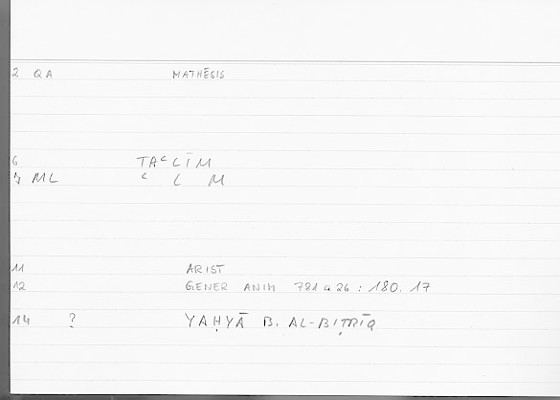 2 QA MATHĒSIS
6 TAᶜLĪM
7 ML ᶜ L M
11 ARIST
12 GENER ANIM 781 a 26 : 180.17
14 ? YAḤYĀ B. AL-BIṬRĪQ